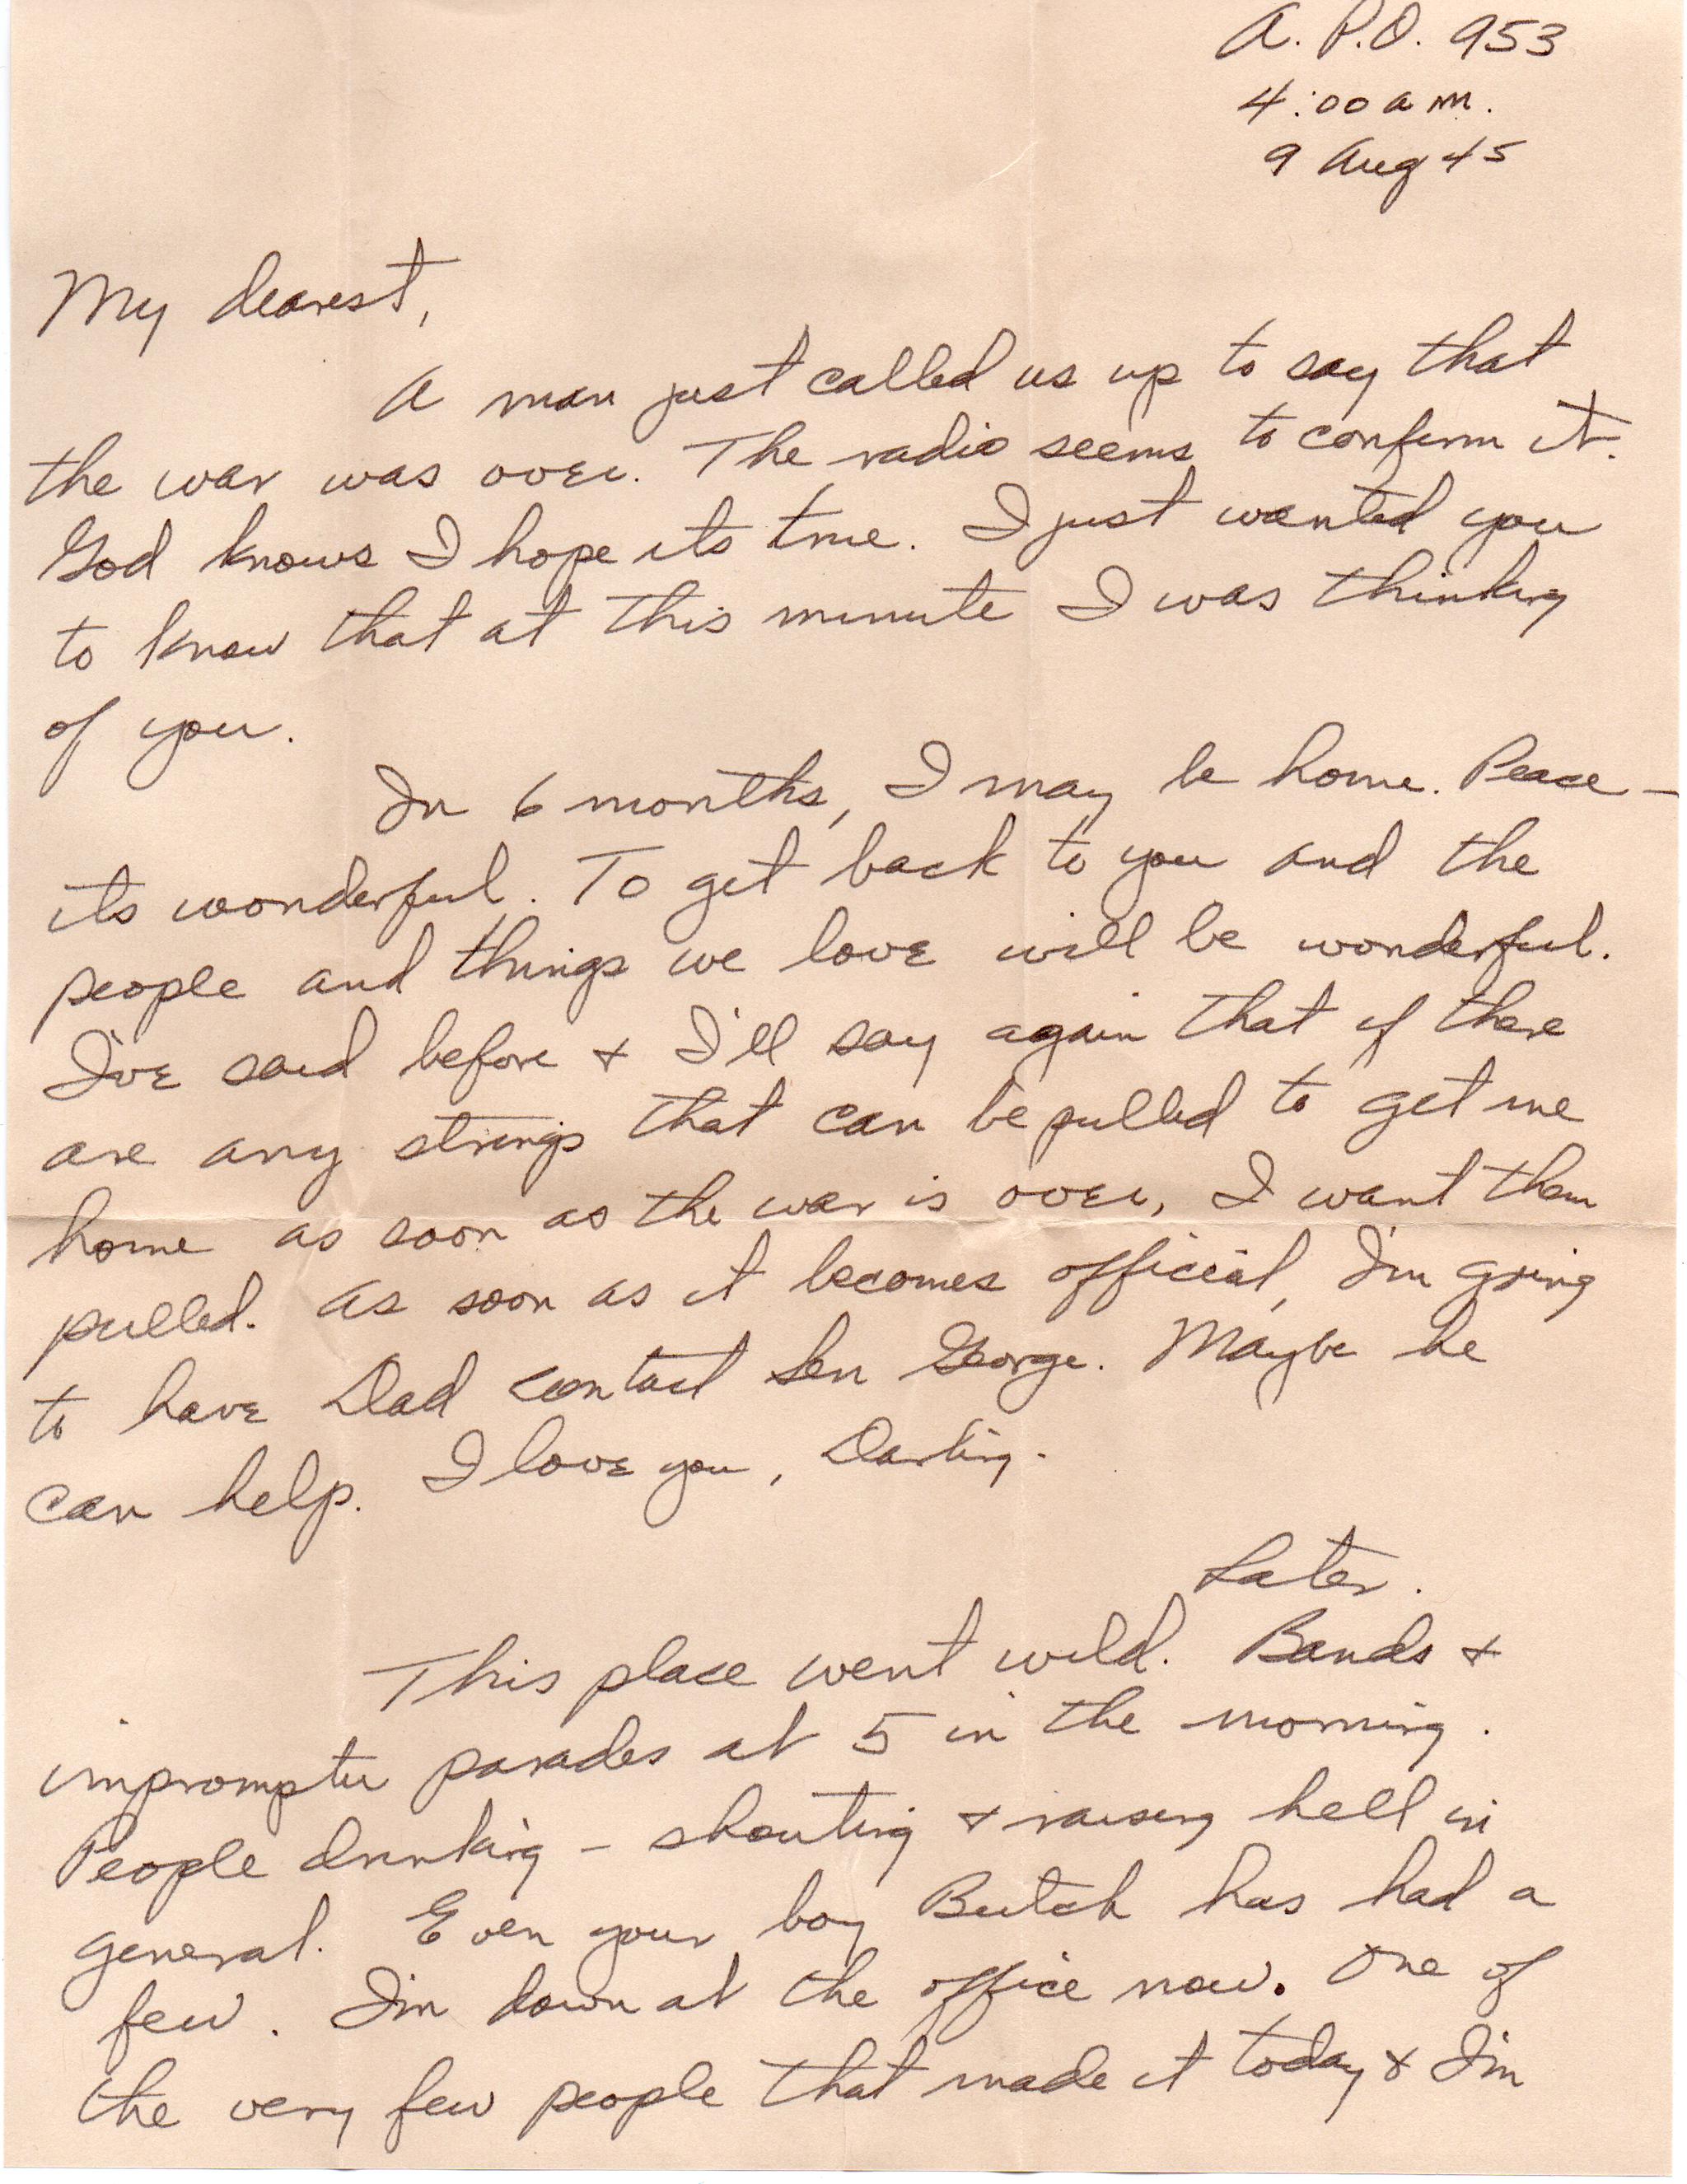 A. P.O. 953
4:00 a m.
9 Aug 45
My dearest,
A man just called us up to say that
the war was over. The radio seems to confirm it.
God knows I hope its true. I just wanted you
to know that at this minute I was thinking
of you.
In 6 months, I may be home. Peace –
its wonderful. To get back to you and the
people and things we love will be wonderful.
I've said before & I'll say again that if there
are any strings that can be pulled to get me
home as soon as the war is over, I want them
pulled. As soon as it becomes official, I'm going
to have Dad contact Sen George. Maybe he
can help. I love you, Darling.
Later.
This place went wild. Bands &
impromptu parades at 5 in the morning.
People drinking – shouting & raising hell in
general. Even your boy Butch has had a
few. I'm down at the office now. One of
the very few people that made it today & I'm